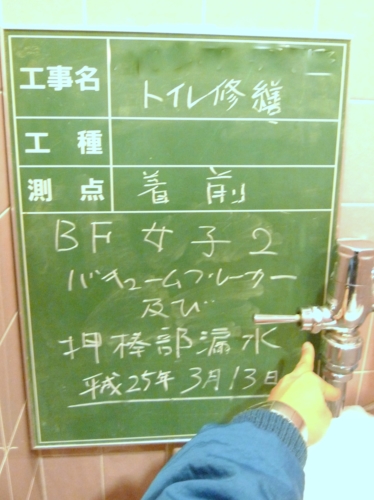 工事名 トイレ修繕
工種
測点 着前
BF女子2
バキュームブレーカー
及び
押棒部漏水
平成25年3月13日